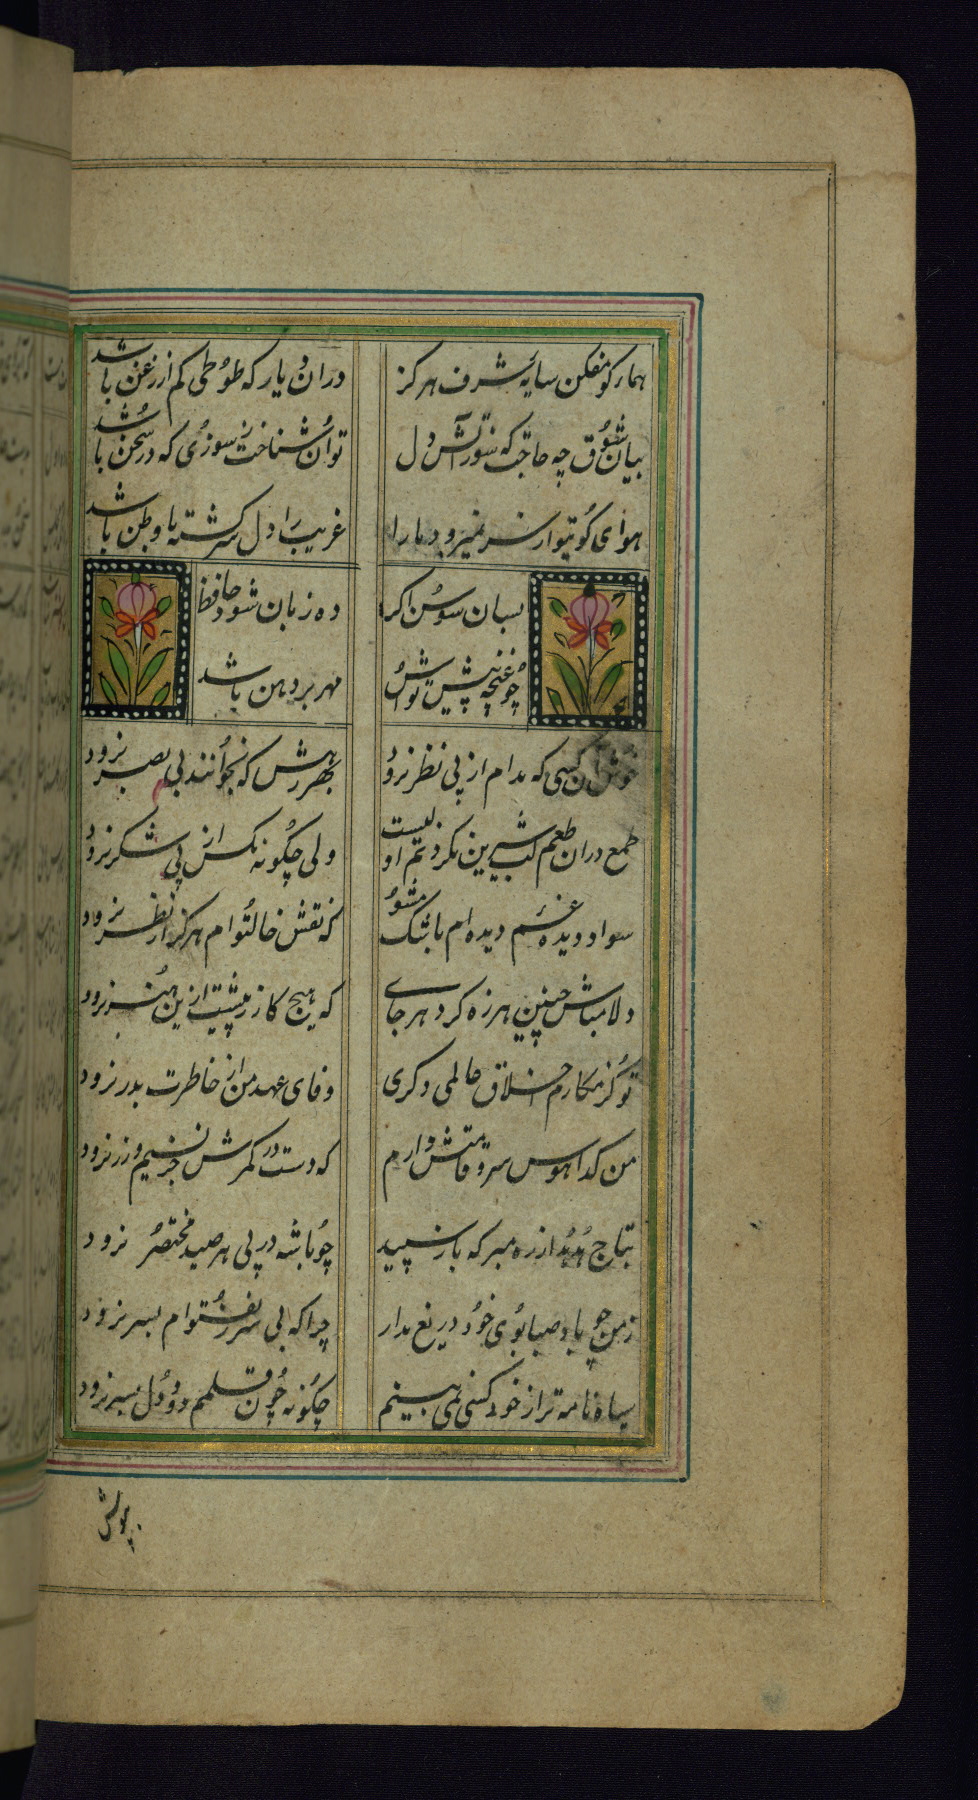 همار کو مفکن سایهٔ شرف هرکز
دران دیار که طوطی کم از زغن باشد
بیان شوق چه حاجت که سوز آتش دل
توان شناخت ز سوزی که در سخن باشد
هوای کوی تو از سر نمیرود ما را
غریب را دل سرکشته با وطن باشد
بسان سوسن اکر
ده زبان شود حافظ
چو غنچه پیش تواش
مهر بر دهن باشد
خوش آن کسی که مدام از پی نظر نرود
بهر رهش که بخوانند بی بصر نرود
طمع دران لب شیرین نکردنم اولیست
ولی چکونه مکس از پی شکر نرود
سواد دیدهٔ غم دیده ام باشک مشو
که نقش خال توام هرکز از نظر نرود
دلا مباش چنین هرزه کرد هر جای
که هیچ کار ز پیشت ازین هنر نرود
تو کز مکارم اخلاق عالمی دکری
وفای عهد من از خاطرت بدر نرود
من کدا هوس سرو قامتش دارم
که دست در کمرش جز بسیم و زر نرود
بتاج هدهد از ره مبر که باز سپید
چو باشه در پی هر صید مختصر نرود
ز من چو باد صبا بوی خود دریغ مدار
چرا که بی سر زلف توام بسر نرود
سیاه نامه تر از خود کسی نمی بینم
چکونه چون قلمم دود دل بسر نرود
بپوش